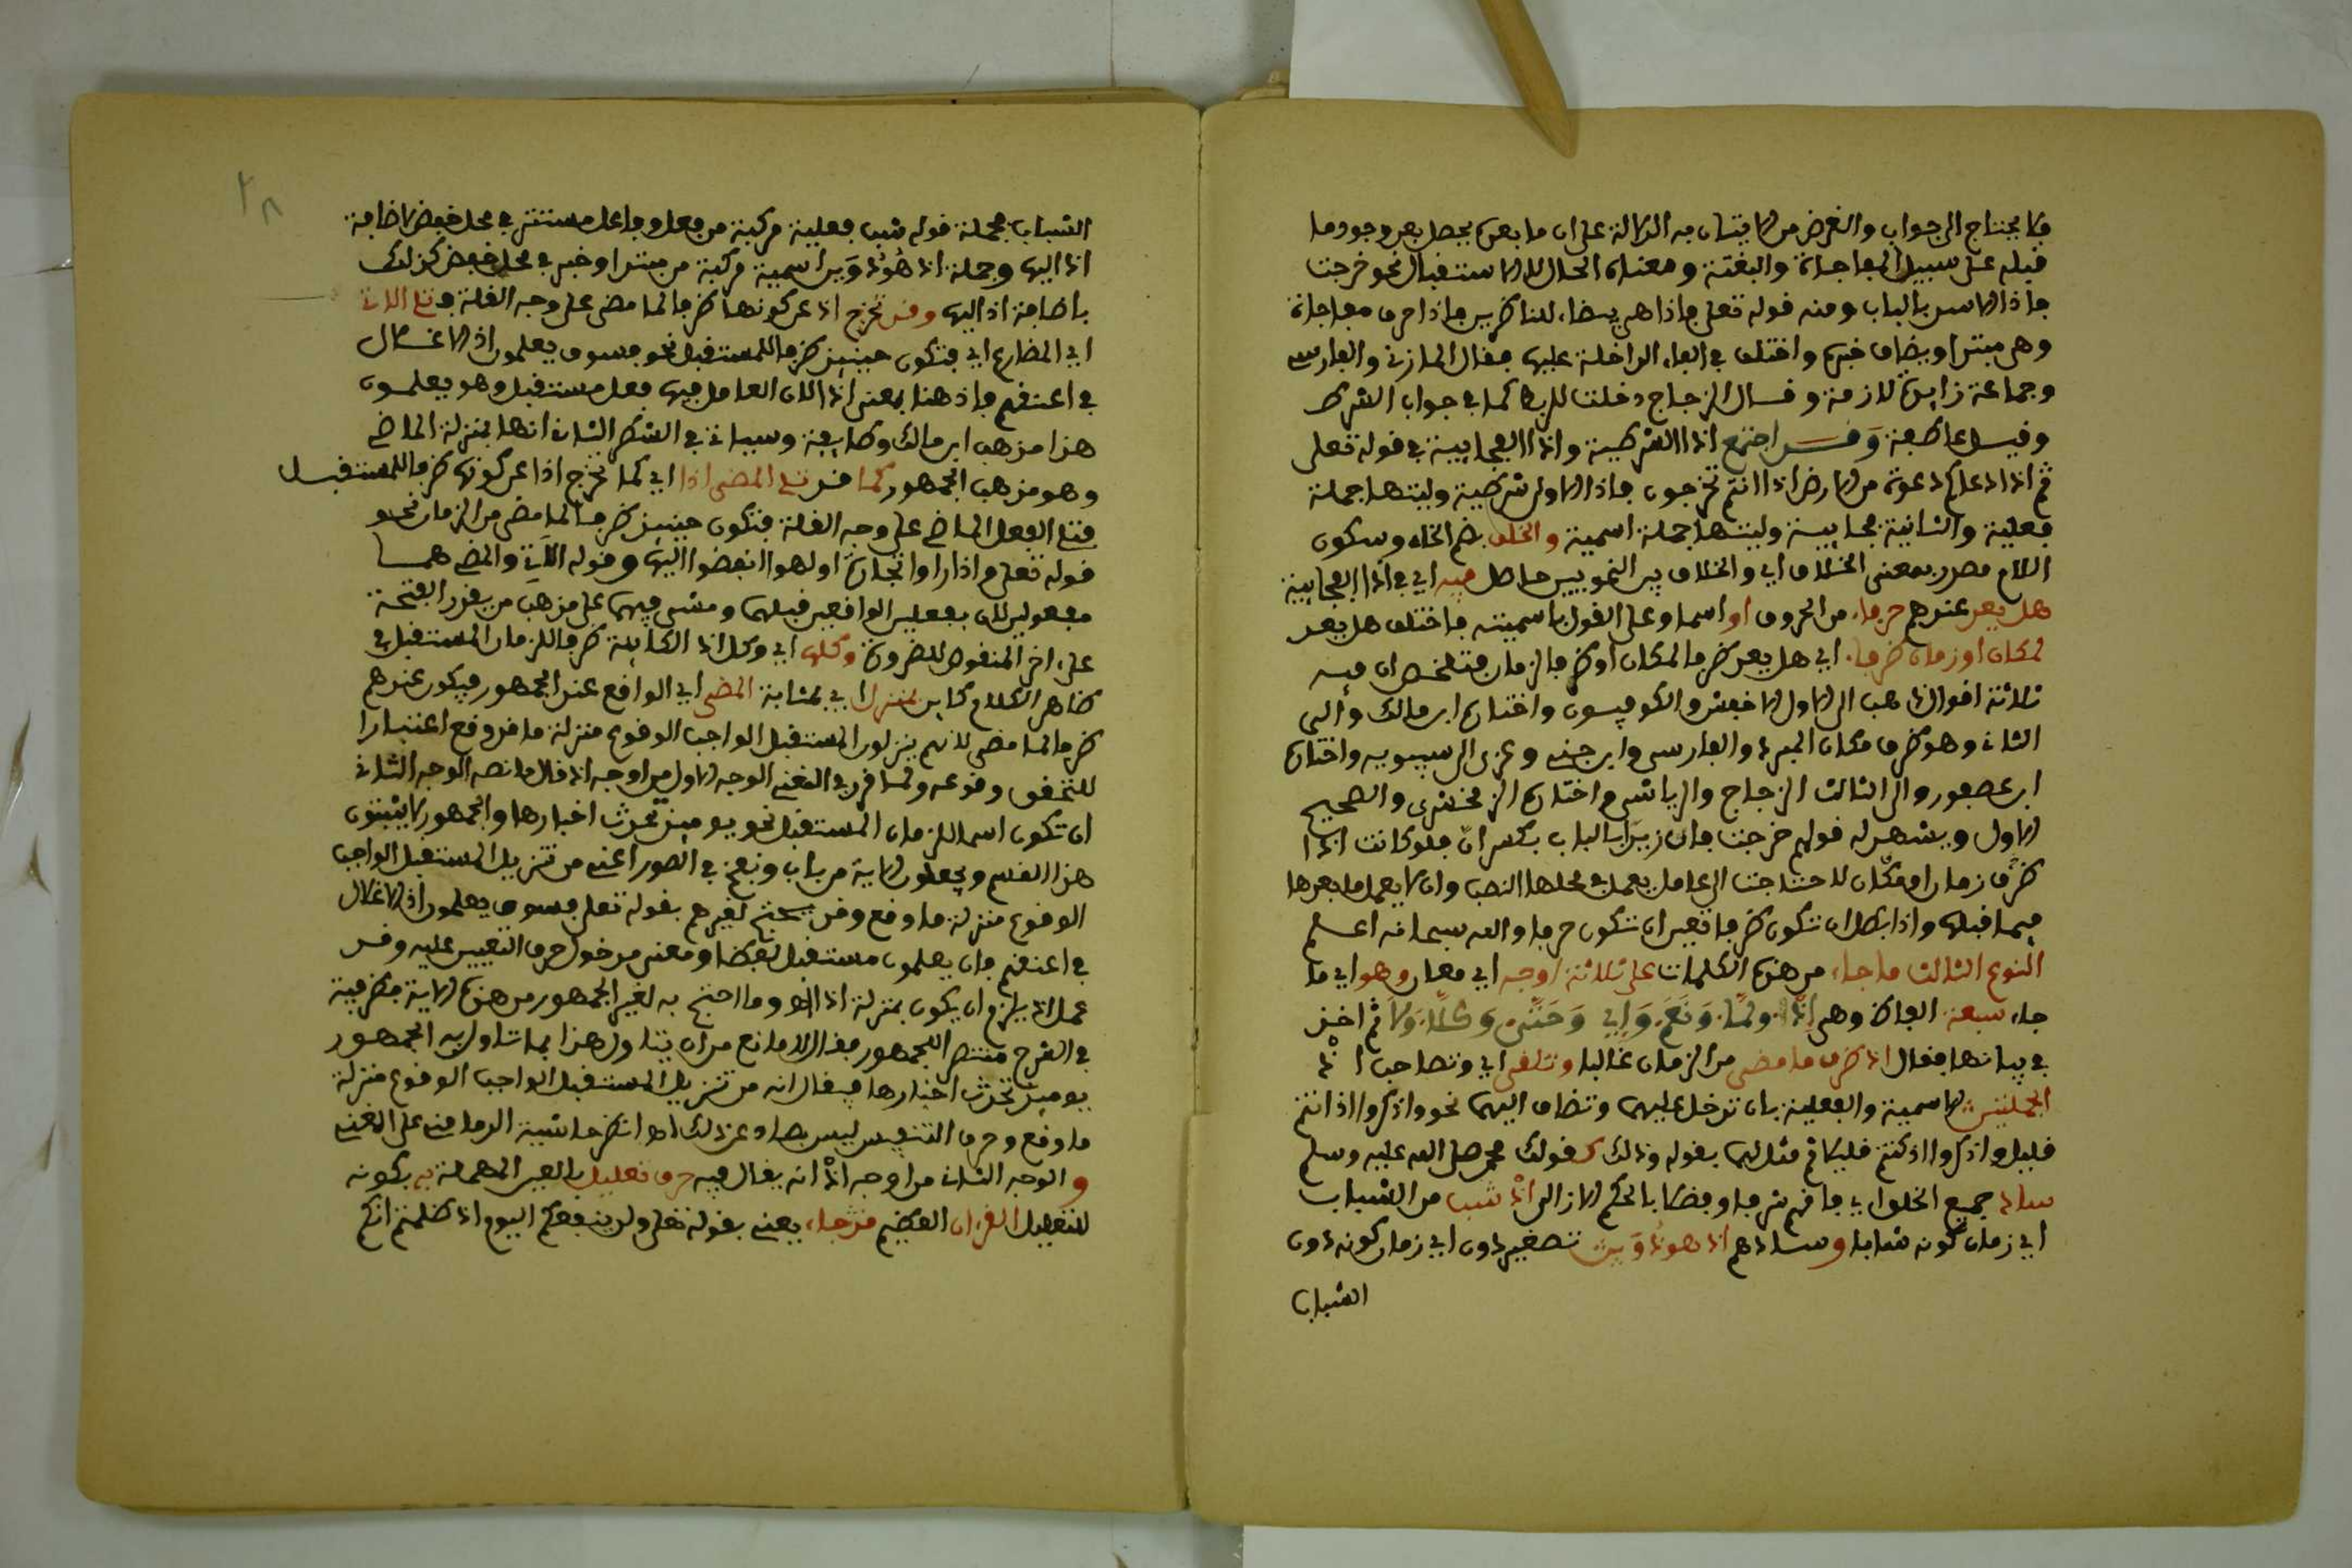 فلا يحتاج الى جواب والغرض من الاتيان به الدلالة على ان ما بعده يحصل بعد وجود ما
قبله على سبيل المفاجاة والبغتة ومعناه الحال لا الاستقبال نحو خرجت
فاذا الاسد بالباب ومنه قوله تعلى فاذا هي بيضاء للناظرين فاذا حرف مفاجاة
وهي مبتدا وبيضاء خبره واختلف في الفاء الداخلة عليها فقال المازني والفارسي
وجماعة زايدة لازمة وقال الزجاج دخلت للربط كما في جواب الشرط
وقيل عاطفة وقد اجتمع اذا الشرطية واذا الفجايية في قوله تعلى
ثم اذا دعاكم دعوة من الارض اذا انتم تخرجون فاذا الاولى شرطية وليتها جملة
فعلية والثانية فجايية وليتها جملة اسمية والخلف بضم الخاء وسكون
اللام مصدر بمعنى الخلاف اي والخلاف بين النحويين حاصل فيه اي في اذا الفجايية
هل يعد عندهم حرفا من الحروف او اسما وعلى القول باسميته فاختلف هل يعد
لمكان او زمان ظرفا اي هل يعد ظرفا لمكان او ظرفا لزمان فتلخص ان فيه
ثلاثة اقوال ذهب الى الاول الاخفش والكوفيون واختاره ابن مالك والى
الثاني وهو ظرف مكان المبرد والفارسي وابن جني وعزي الى سيبويه واختاره
ابن عصفور والى الثالث الزجاج والرياشي واختاره الزمخشري والصحيح
الاول ويشهد له قولهم خرجت فان زيدا بالباب بكسر ان فلو كانت اذا
ظرف زمان او مكان لاحتاجت الى عامل يعمل في محلها النصب وان لا يعمل ما بعدها
فيما قبلها واذا بطل ان تكون ظرفا تعين ان تكون حرفا والله سبحانه اعلم
النوع الثالث ما جاء من هذه الكلمات على ثلاثة اوجه اي معان وهو اي ما
جاء سبعة الفاظ وهي اذ ولما ونعم واي وحتى وكلا ولا ثم اخذ
في بيانها فقال اذ ظرف ما مضى من الزمان غالبا وتلفى اي وتصاحب اذ
الجملتين الاسمية والفعلية بان تدخل عليهما وتضاف اليهما نحو واذكروا اذ انتم
قليل واذكروا اذ كنتم قليلا ثم مثل لهما بقوله وذلك كقولك محمد صلى الله عليه وسلم
ساد جميع الخلق اي فاقهم شرفا وفضلا بالحكم الازلي اذ شب من الشباب
اي زمان كونه شابا وسادهم اذ هو دوين تصغير دون اي زمان كونه دون
الشباب
٢٨
الشباب فجملة قوله شب فعلية مركبة من فعل وفاعل مستتر في محل خفض لاضافة
اذ اليها وجملة اذ هو دوين اسمية مركبة من مبتدا وخبر في محل خفض كذلك
باضافة اذ اليها وقد تخرج اذ عن كونها ظرفا لما مضى على وجه القلة وتلي الاتي
اي المضارع اي فتكون حينيذ ظرفا للمستقبل نحو فسوف يعلمون اذ الاغلال
في اعنقهم فاذ هنا بمعنى اذا لان العامل فيها فعل مستقبل وهو يعلمون
هذا مذهب ابن مالك وطايفة وسياتي في الشطر الثاني انها بمنزلة الماضي
وهو مذهب الجمهور كما قد تلي المضي اذا اي كما تخرج اذا عن كونها ظرفا للمستقبل
فتلي الفعل الماضي على وجه القلة فتكون حينيذ ظرفا لما مضى من الزمان نحو
قوله تعلى واذا راوا تجارة او لهوا انفضوا اليها وقوله الاتي والمضي هما
مفعولين لان بفعلين الواقعين قبلهما ومشى فيهما على مذهب من يقدر الفتحة
على اخر المنقوص للضرورة وكلها اي وكل اذ الكاينة ظرفا للزمان المستقبل في
ظاهر الكلام كاين بمنزل اي بمثابة المضي اي الواقع عند الجمهور فيكون عندهم
ظرفا لما مضى لانهم ينزلون المستقبل الواجب الوقوع منزلة ما قد وقع اعتبارا
للتحقق وقوعه ولما قرر في المغني الوجه الاول من اوجه اذ قال ما نصه الوجه الثاني
ان تكون اسما للزمان المستقبل نحو يوميذ تحدث اخبارها والجمهور لا يثبتون
هذا القسم ويجعلون الاية من باب ونفخ في الصور اعني من تنزيل المستقبل الواجب
الوقوع منزلة ما وقع وقد يحتج لغيرهم بقوله تعلى فسوف يعلمون اذ الاغلال
في اعنقهم فان يعلمون مستقبل لفظا ومعنى لدخول حرف التنفيس عليه وقد
عمل في اذ فيلزم ان يكون بمنزلة اذا اهـ وما احتج به لغير الجمهور من هذه الاية
في الشرح منتصرا للجمهور فقال لا مانع من ان يتاول هذا بما تاول به الجمهور
يوميذ تحدث اخبارها فيقال انه من تنزيل المستقبل الواجب الوقوع منزلة
ما وقع وحرف التنفيس ليس بصاد عن ذلك اهـ انظر حاشية الدماميني على المغني
والوجه الثاني من اوجه اذ انه يقال فيه حرف تعليل بالعين المهملة به بكونه
للتعليل القرءان العظيم قد جاء يعني بقوله تعلى ولن ينفعكم اليوم اذ ظلمتم انكم